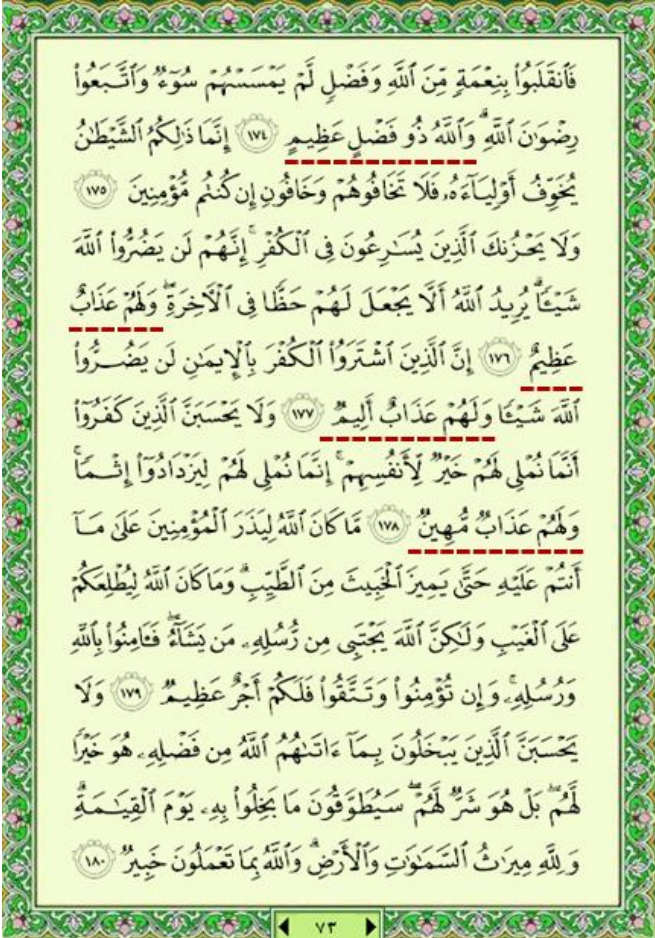 فَٱنقَلَبُوا۟ بِنِعْمَةٍ مِّنَ ٱللَّهِ وَفَضْلٍ لَّمْ يَمْسَسْهُمْ سُوٓءٌ وَٱتَّبَعُوا۟
رِضْوَٰنَ ٱللَّهِ ۗ وَٱللَّهُ ذُو فَضْلٍ عَظِيمٍ ١٧٤ إِنَّمَا ذَٰلِكُمُ ٱلشَّيْطَٰنُ
يُخَوِّفُ أَوْلِيَآءَهُۥ فَلَا تَخَافُوهُمْ وَخَافُونِ إِن كُنتُم مُّؤْمِنِينَ ١٧٥
وَلَا يَحْزُنكَ ٱلَّذِينَ يُسَٰرِعُونَ فِى ٱلْكُفْرِ ۚ إِنَّهُمْ لَن يَضُرُّوا۟ ٱللَّهَ
شَيْـًٔا ۗ يُرِيدُ ٱللَّهُ أَلَّا يَجْعَلَ لَهُمْ حَظًّا فِى ٱلْـَٔاخِرَةِ ۖ وَلَهُمْ عَذَابٌ
عَظِيمٌ ١٧٦ إِنَّ ٱلَّذِينَ ٱشْتَرَوُا۟ ٱلْكُفْرَ بِٱلْإِيمَٰنِ لَن يَضُرُّوا۟
ٱللَّهَ شَيْـًٔا وَلَهُمْ عَذَابٌ أَلِيمٌ ١٧٧ وَلَا يَحْسَبَنَّ ٱلَّذِينَ كَفَرُوٓا۟
أَنَّمَا نُمْلِى لَهُمْ خَيْرٌ لِّأَنفُسِهِمْ ۚ إِنَّمَا نُمْلِى لَهُمْ لِيَزْدَادُوٓا۟ إِثْمًا ۚ
وَلَهُمْ عَذَابٌ مُّهِينٌ ١٧٨ مَّا كَانَ ٱللَّهُ لِيَذَرَ ٱلْمُؤْمِنِينَ عَلَىٰ مَآ
أَنتُمْ عَلَيْهِ حَتَّىٰ يَمِيزَ ٱلْخَبِيثَ مِنَ ٱلطَّيِّبِ ۗ وَمَا كَانَ ٱللَّهُ لِيُطْلِعَكُمْ
عَلَى ٱلْغَيْبِ وَلَٰكِنَّ ٱللَّهَ يَجْتَبِى مِن رُّسُلِهِۦ مَن يَشَآءُ ۖ فَـَٔامِنُوا۟ بِٱللَّهِ
وَرُسُلِهِۦ ۚ وَإِن تُؤْمِنُوا۟ وَتَتَّقُوا۟ فَلَكُمْ أَجْرٌ عَظِيمٌ ١٧٩ وَلَا
يَحْسَبَنَّ ٱلَّذِينَ يَبْخَلُونَ بِمَآ ءَاتَىٰهُمُ ٱللَّهُ مِن فَضْلِهِۦ هُوَ خَيْرًا
لَّهُم ۖ بَلْ هُوَ شَرٌّ لَّهُمْ ۖ سَيُطَوَّقُونَ مَا بَخِلُوا۟ بِهِۦ يَوْمَ ٱلْقِيَٰمَةِ ۗ
وَلِلَّهِ مِيرَٰثُ ٱلسَّمَٰوَٰتِ وَٱلْأَرْضِ ۗ وَٱللَّهُ بِمَا تَعْمَلُونَ خَبِيرٌ ١٨٠
٧٣